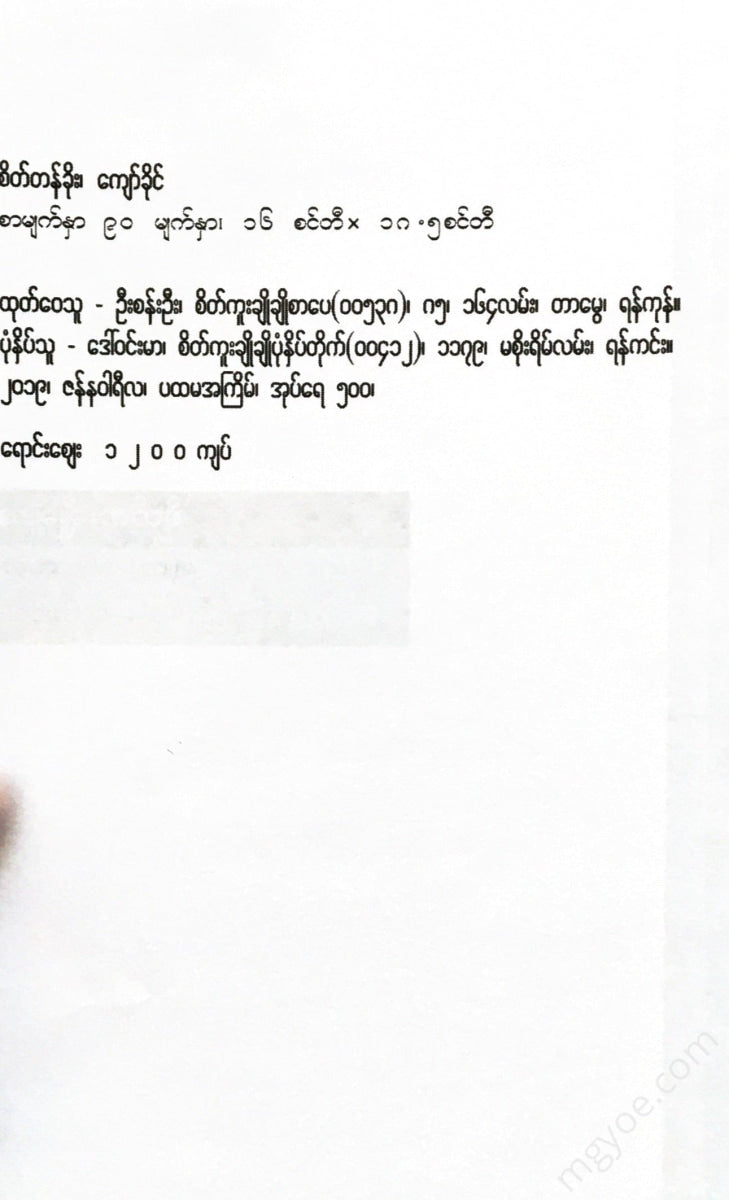 စိတ်တန်ခိုး၊ ကျော်ခိုင်
စာမျက်နှာ ၉၀ မျက်နှာ၊ ၁၆ စင်တီ× ၁ဂ.၅စင်တီ
ထုတ်ဝေသူ - ဦးစန်းဦး၊ စိတ်ကူးချိုချိုစာပေ(၀၀၅၃ဂ)၊ ဂ၅၊ ၁၆၄လမ်း၊ တာမွေ၊ ရန်ကုန်။
ပုံနှိပ်သူ - ဒေါ်ဝင်းမာ၊ စိတ်ကူးချိုချိုပုံနှိပ်တိုက်(၀၀၄၁၂)၊ ၁၁၇၉၊ မစိုးရိမ်လမ်း၊ ရန်ကင်း။
၂၀၁၉၊ ဇန်နဝါရီလ၊ ပထမအကြိမ်၊ အုပ်ရေ ၅၀၀၊
ရောင်းဈေး ၁ ၂ ၀ ၀ ကျပ်
mgyoe.com